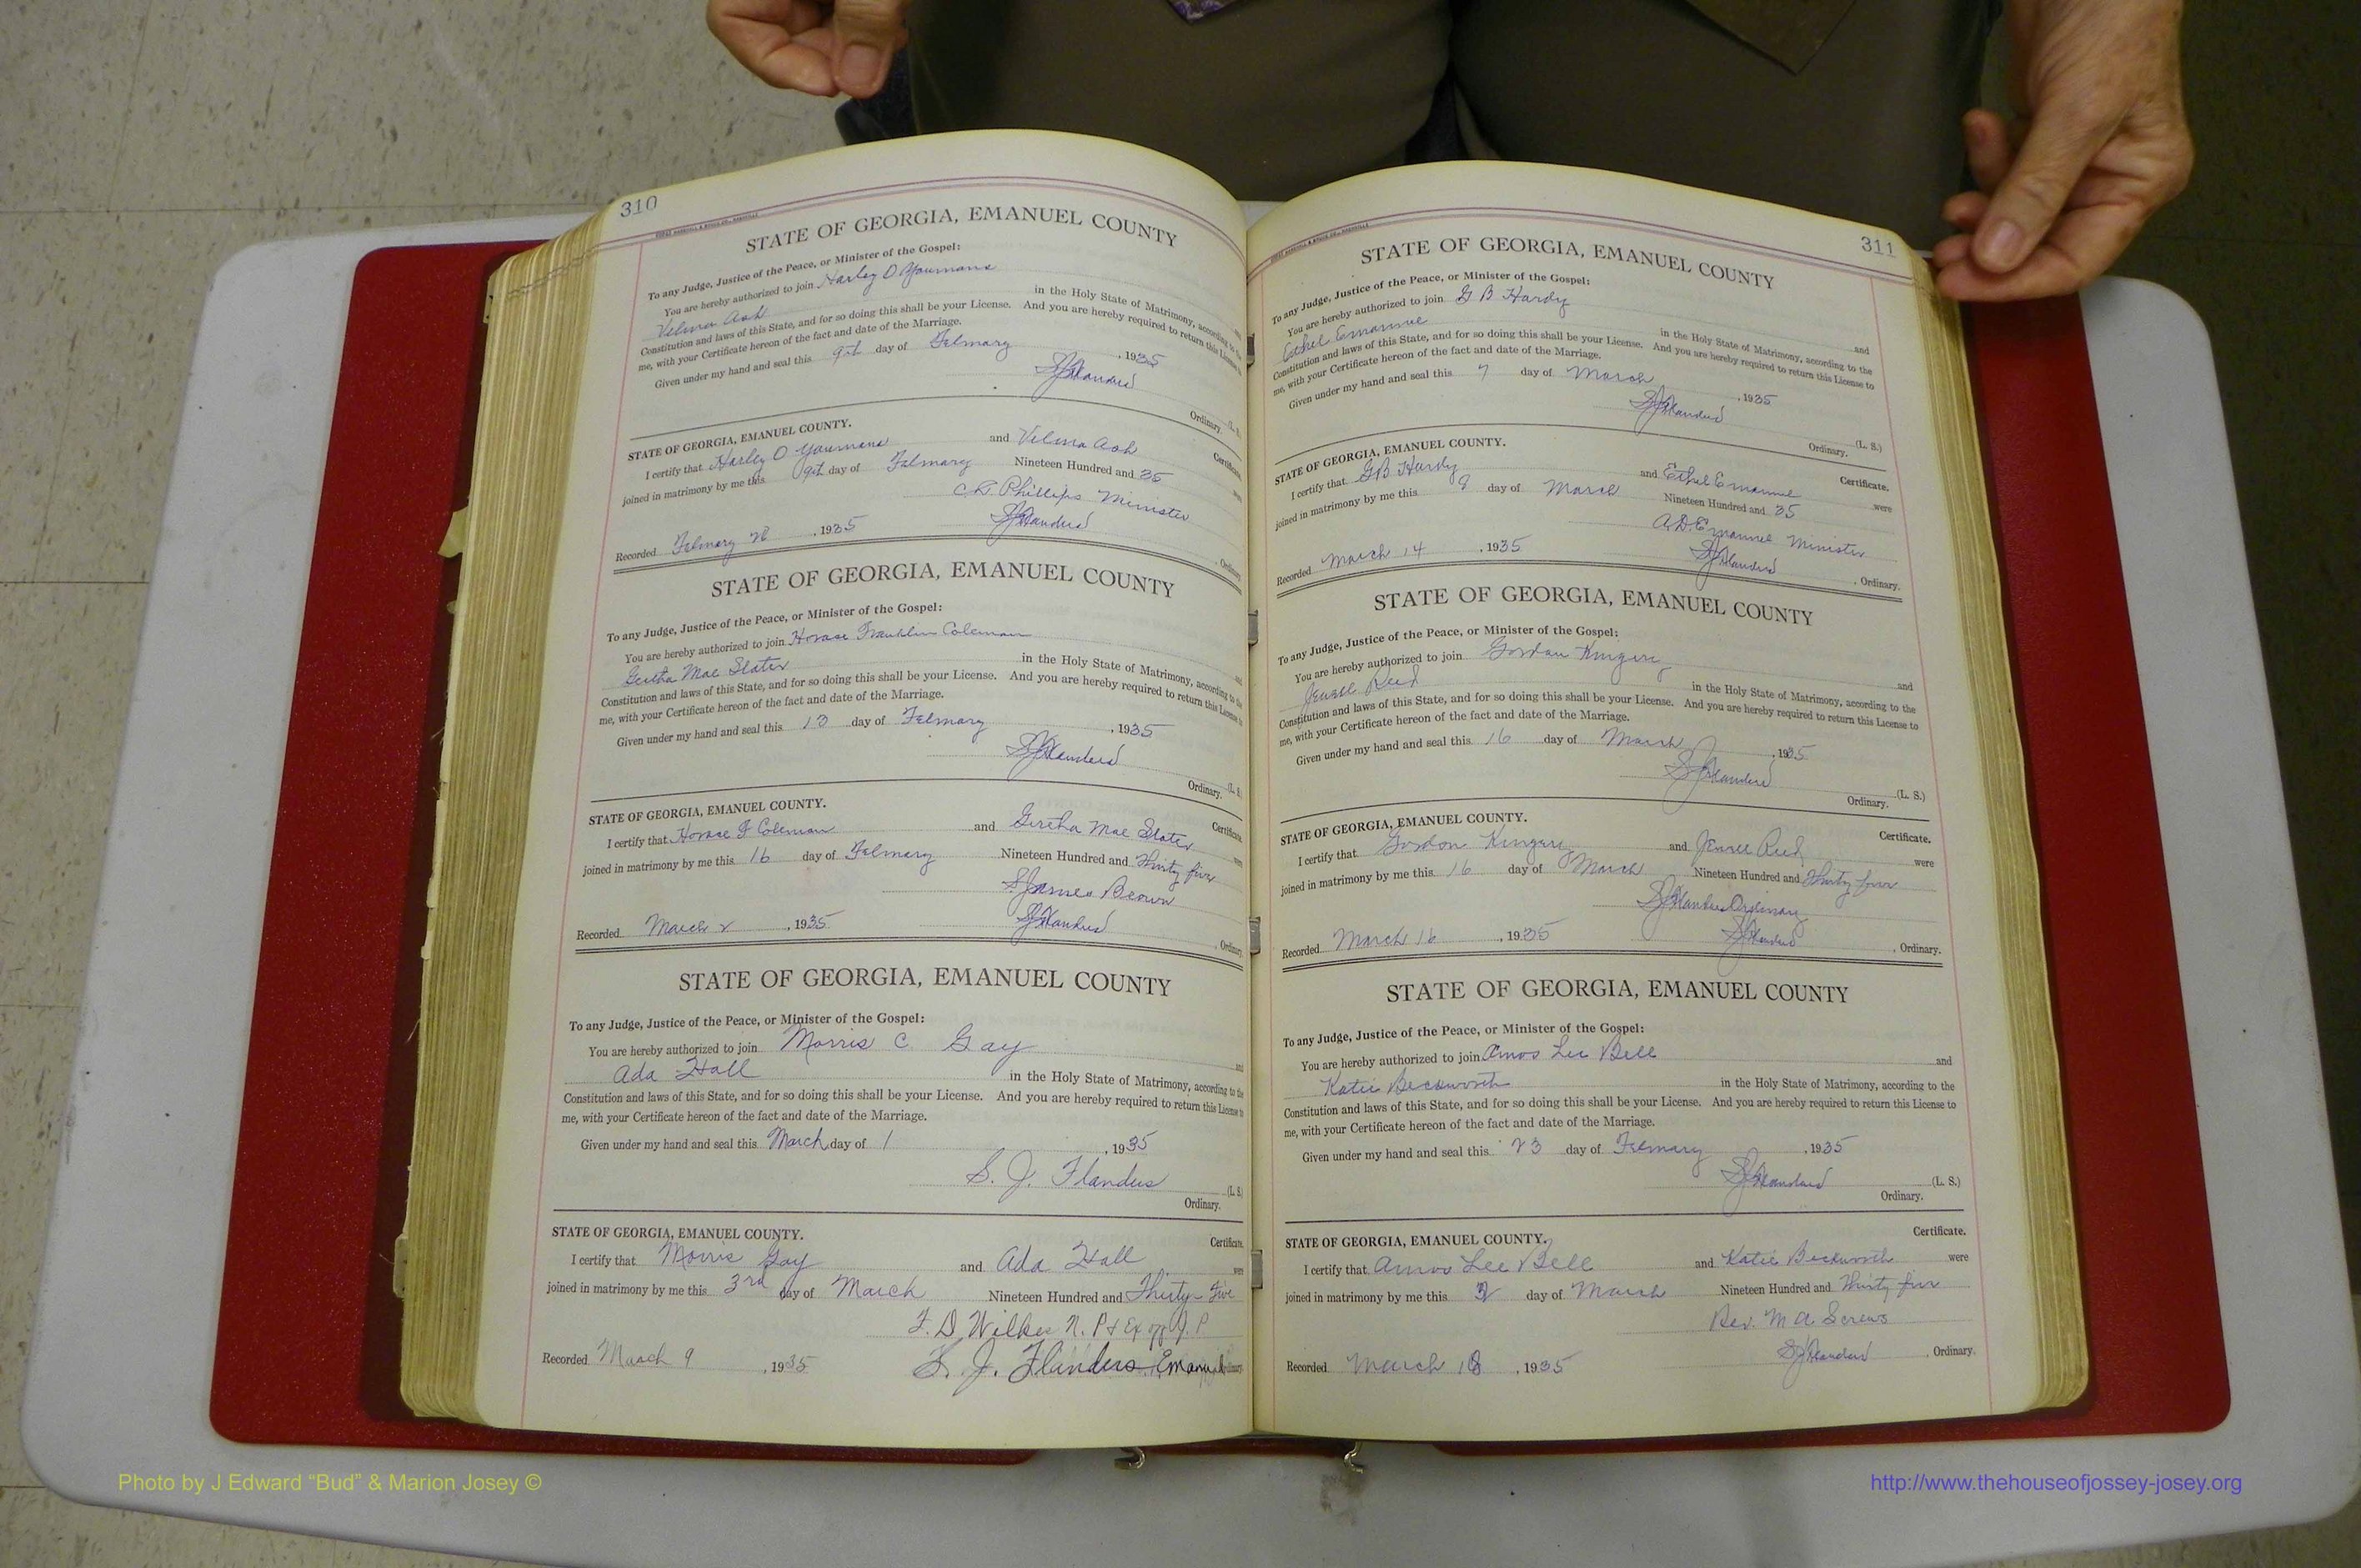 310
STATE OF GEORGIA, EMANUEL COUNTY
To any Judge, Justice of the Peace, or Minister of the Gospel:
You are hereby authorized to join Harley O Youmans
Velma Ash in the Holy State of Matrimony, according to the
Constitution and laws of this State, and for so doing this shall be your License. And you are hereby required to return this License
me, with your Certificate hereon of the fact and date of the Marriage.
Given under my hand and seal this 9th day of February, 1935
S J Flanders (L. S.)
Ordinary.
STATE OF GEORGIA, EMANUEL COUNTY. Certificate.
I certify that Harley O Youmans and Velma Ash
joined in matrimony by me this 9th day of February Nineteen Hundred and 35
Phillips Minister
Recorded February 28, 1935 S J Flanders, Ordinary.
STATE OF GEORGIA, EMANUEL COUNTY
To any Judge, Justice of the Peace, or Minister of the Gospel:
You are hereby authorized to join Horase Franklin Coleman and
Gertha Mae Slater in the Holy State of Matrimony, according to the
Constitution and laws of this State, and for so doing this shall be your License. And you are hereby required to return this License to
me, with your Certificate hereon of the fact and date of the Marriage.
Given under my hand and seal this 13 day of February, 1935
S J Flanders (L. S.)
Ordinary.
STATE OF GEORGIA, EMANUEL COUNTY. Certificate.
I certify that Horase F Coleman and Gertha Mae Slater were
joined in matrimony by me this 16 day of February Nineteen Hundred and Thirty five
S. James Brown
Recorded March 2, 1935 S J Flanders, Ordinary.
STATE OF GEORGIA, EMANUEL COUNTY
To any Judge, Justice of the Peace, or Minister of the Gospel:
You are hereby authorized to join Morris C. Gay and
Ada Hall in the Holy State of Matrimony, according to the
Constitution and laws of this State, and for so doing this shall be your License. And you are hereby required to return this License to
me, with your Certificate hereon of the fact and date of the Marriage.
Given under my hand and seal this March day of 1, 1935
S. J. Flanders (L. S.)
Ordinary.
STATE OF GEORGIA, EMANUEL COUNTY. Certificate.
I certify that Morris Gay and Ada Hall were
joined in matrimony by me this 3rd day of March Nineteen Hundred and Thirty-Five
F. D. Wilkes N. P & Ex off J. P
Recorded March 9, 1935 S. J. Flanders, Emanuel Ordinary.
311
STATE OF GEORGIA, EMANUEL COUNTY
To any Judge, Justice of the Peace, or Minister of the Gospel:
You are hereby authorized to join G B Hardy and
Ethel Emanuel in the Holy State of Matrimony, according to the
Constitution and laws of this State, and for so doing this shall be your License. And you are hereby required to return this License to
me, with your Certificate hereon of the fact and date of the Marriage.
Given under my hand and seal this 7 day of March, 1935
S J Flanders (L. S.)
Ordinary.
STATE OF GEORGIA, EMANUEL COUNTY. Certificate.
I certify that G B Hardy and Ethel Emanuel were
joined in matrimony by me this 8 day of March Nineteen Hundred and 35
A. D. Emanuel Minister
Recorded March 14, 1935 S J Flanders, Ordinary.
STATE OF GEORGIA, EMANUEL COUNTY
To any Judge, Justice of the Peace, or Minister of the Gospel:
You are hereby authorized to join Gordon Kingery and
Jewell Reid in the Holy State of Matrimony, according to the
Constitution and laws of this State, and for so doing this shall be your License. And you are hereby required to return this License to
me, with your Certificate hereon of the fact and date of the Marriage.
Given under my hand and seal this 16 day of March, 1935
S J Flanders (L. S.)
Ordinary.
STATE OF GEORGIA, EMANUEL COUNTY. Certificate.
I certify that Gordon Kingery and Jewell Reid were
joined in matrimony by me this 16 day of March Nineteen Hundred and Thirty five
S J Flanders Ordinary
Recorded March 16, 1935 S J Flanders, Ordinary.
STATE OF GEORGIA, EMANUEL COUNTY
To any Judge, Justice of the Peace, or Minister of the Gospel:
You are hereby authorized to join Amos Lee Bell and
Katie Beckworth in the Holy State of Matrimony, according to the
Constitution and laws of this State, and for so doing this shall be your License. And you are hereby required to return this License to
me, with your Certificate hereon of the fact and date of the Marriage.
Given under my hand and seal this 23 day of February, 1935
S J Flanders (L. S.)
Ordinary.
STATE OF GEORGIA, EMANUEL COUNTY. Certificate.
I certify that Amos Lee Bell and Katie Beckworth were
joined in matrimony by me this day of March Nineteen Hundred and Thirty five
Rev. M A Screws
Recorded March 18, 1935 S J Flanders, Ordinary.
Photo by J Edward “Bud” & Marion Josey ©
http://www.thehouseofjossey-josey.org